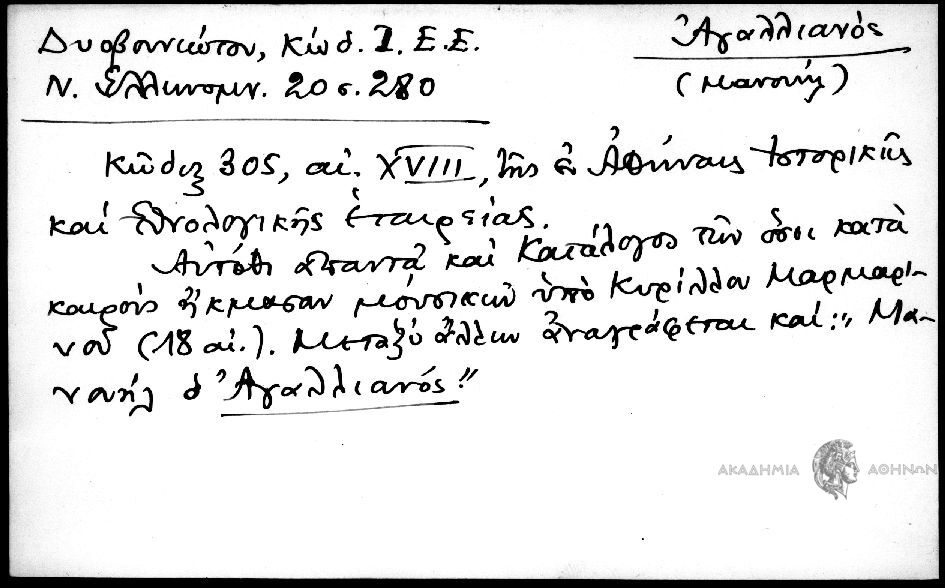 Δυοβουνιώτου, Κώδ. Ι. Ε. Ε.
Ν. Ἑλληνομν. 20 σ. 280
Ἀγαλλιανός
(Μανουήλ)
Κῶδιξ 305, αἰ. XVIII, τῆς ἐν Ἀθήναις Ἱστορικῆς
καί Ἐθνολογικῆς Ἑταιρείας.
Αὐτόθι ἀπαντᾷ καί Κατάλογος τῶν ὅσοι κατὰ
καιροὺς ἤκμασαν μουσικῶν ὑπὸ Κυρίλλου Μαρμαρι-
νοῦ (18 αἰ.). Μεταξύ ἄλλων ἀναγράφεται καί: „Μα-
νουήλ ὁ Ἀγαλλιανός"
ΑΚΑΔΗΜΙΑ ΑΘΗΝΩΝ